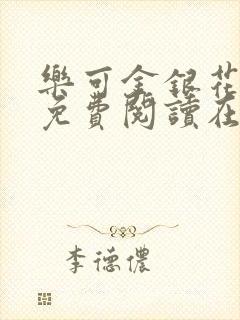 樂可金銀花
免費閱讀在
李德儂